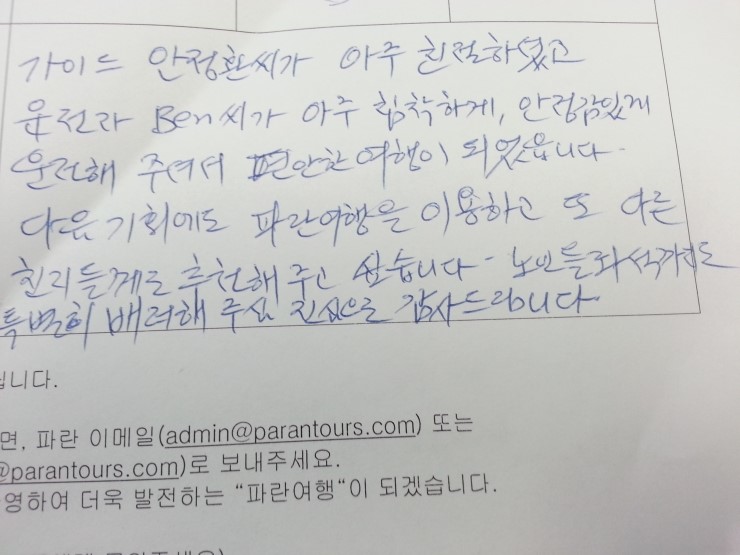 가이드 안정환씨가 아주 친절하셨고
운전자 Ben씨가 아주 침착하게, 안정감있게
운전해 주셔서 편안한 여행이 되었읍니다.
다음 기회에도 파란여행을 이용하고 또 다른
친지들께도 추천해 주고 싶습니다. 노인들 좌석까지도
특별히 배려해 주심 진심으로 감사드립니다.
십니다.
면, 파란 이메일(admin@parantours.com) 또는
@parantours.com)로 보내주세요.
영하여 더욱 발전하는 “파란여행“이 되겠습니다.